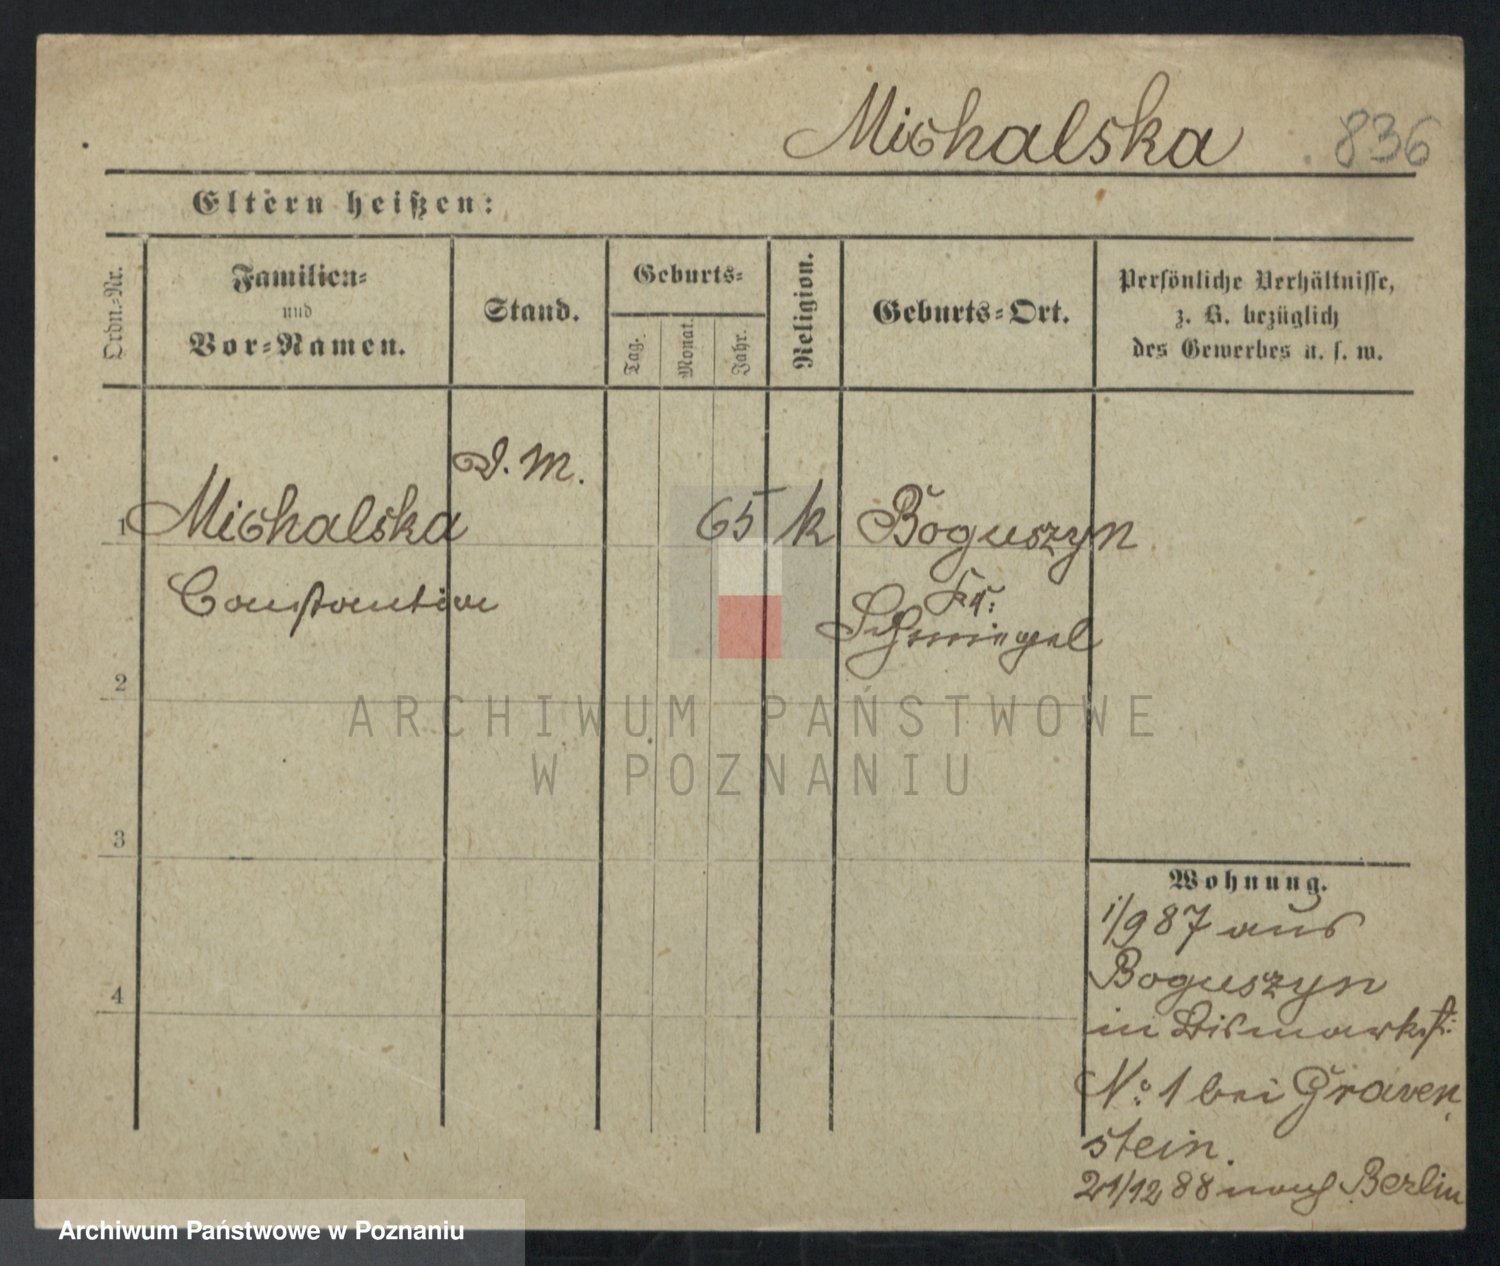 Michalska 836
Eltern heißen:
Ordn.-Nr.
Familien-
und
Vor-Namen.
Stand.
Geburts-
Tag.
Monat.
Jahr.
Religion.
Geburts-Ort.
Persönliche Verhältnisse,
z. B. bezüglich
des Gewerbes u. s. w.
D. M.
1 Michalska 65 k Boguszyn
Constantia
Kr.
Schmiegel
2
ARCHIWUM PAŃSTWOWE
W POZNANIU
3
4
Wohnung.
1/9 87 aus
Boguszyn
in Bismarkstr:
No: 1 bei Graven
stein.
21/12 88 nach Berlin
Archiwum Państwowe w Poznaniu